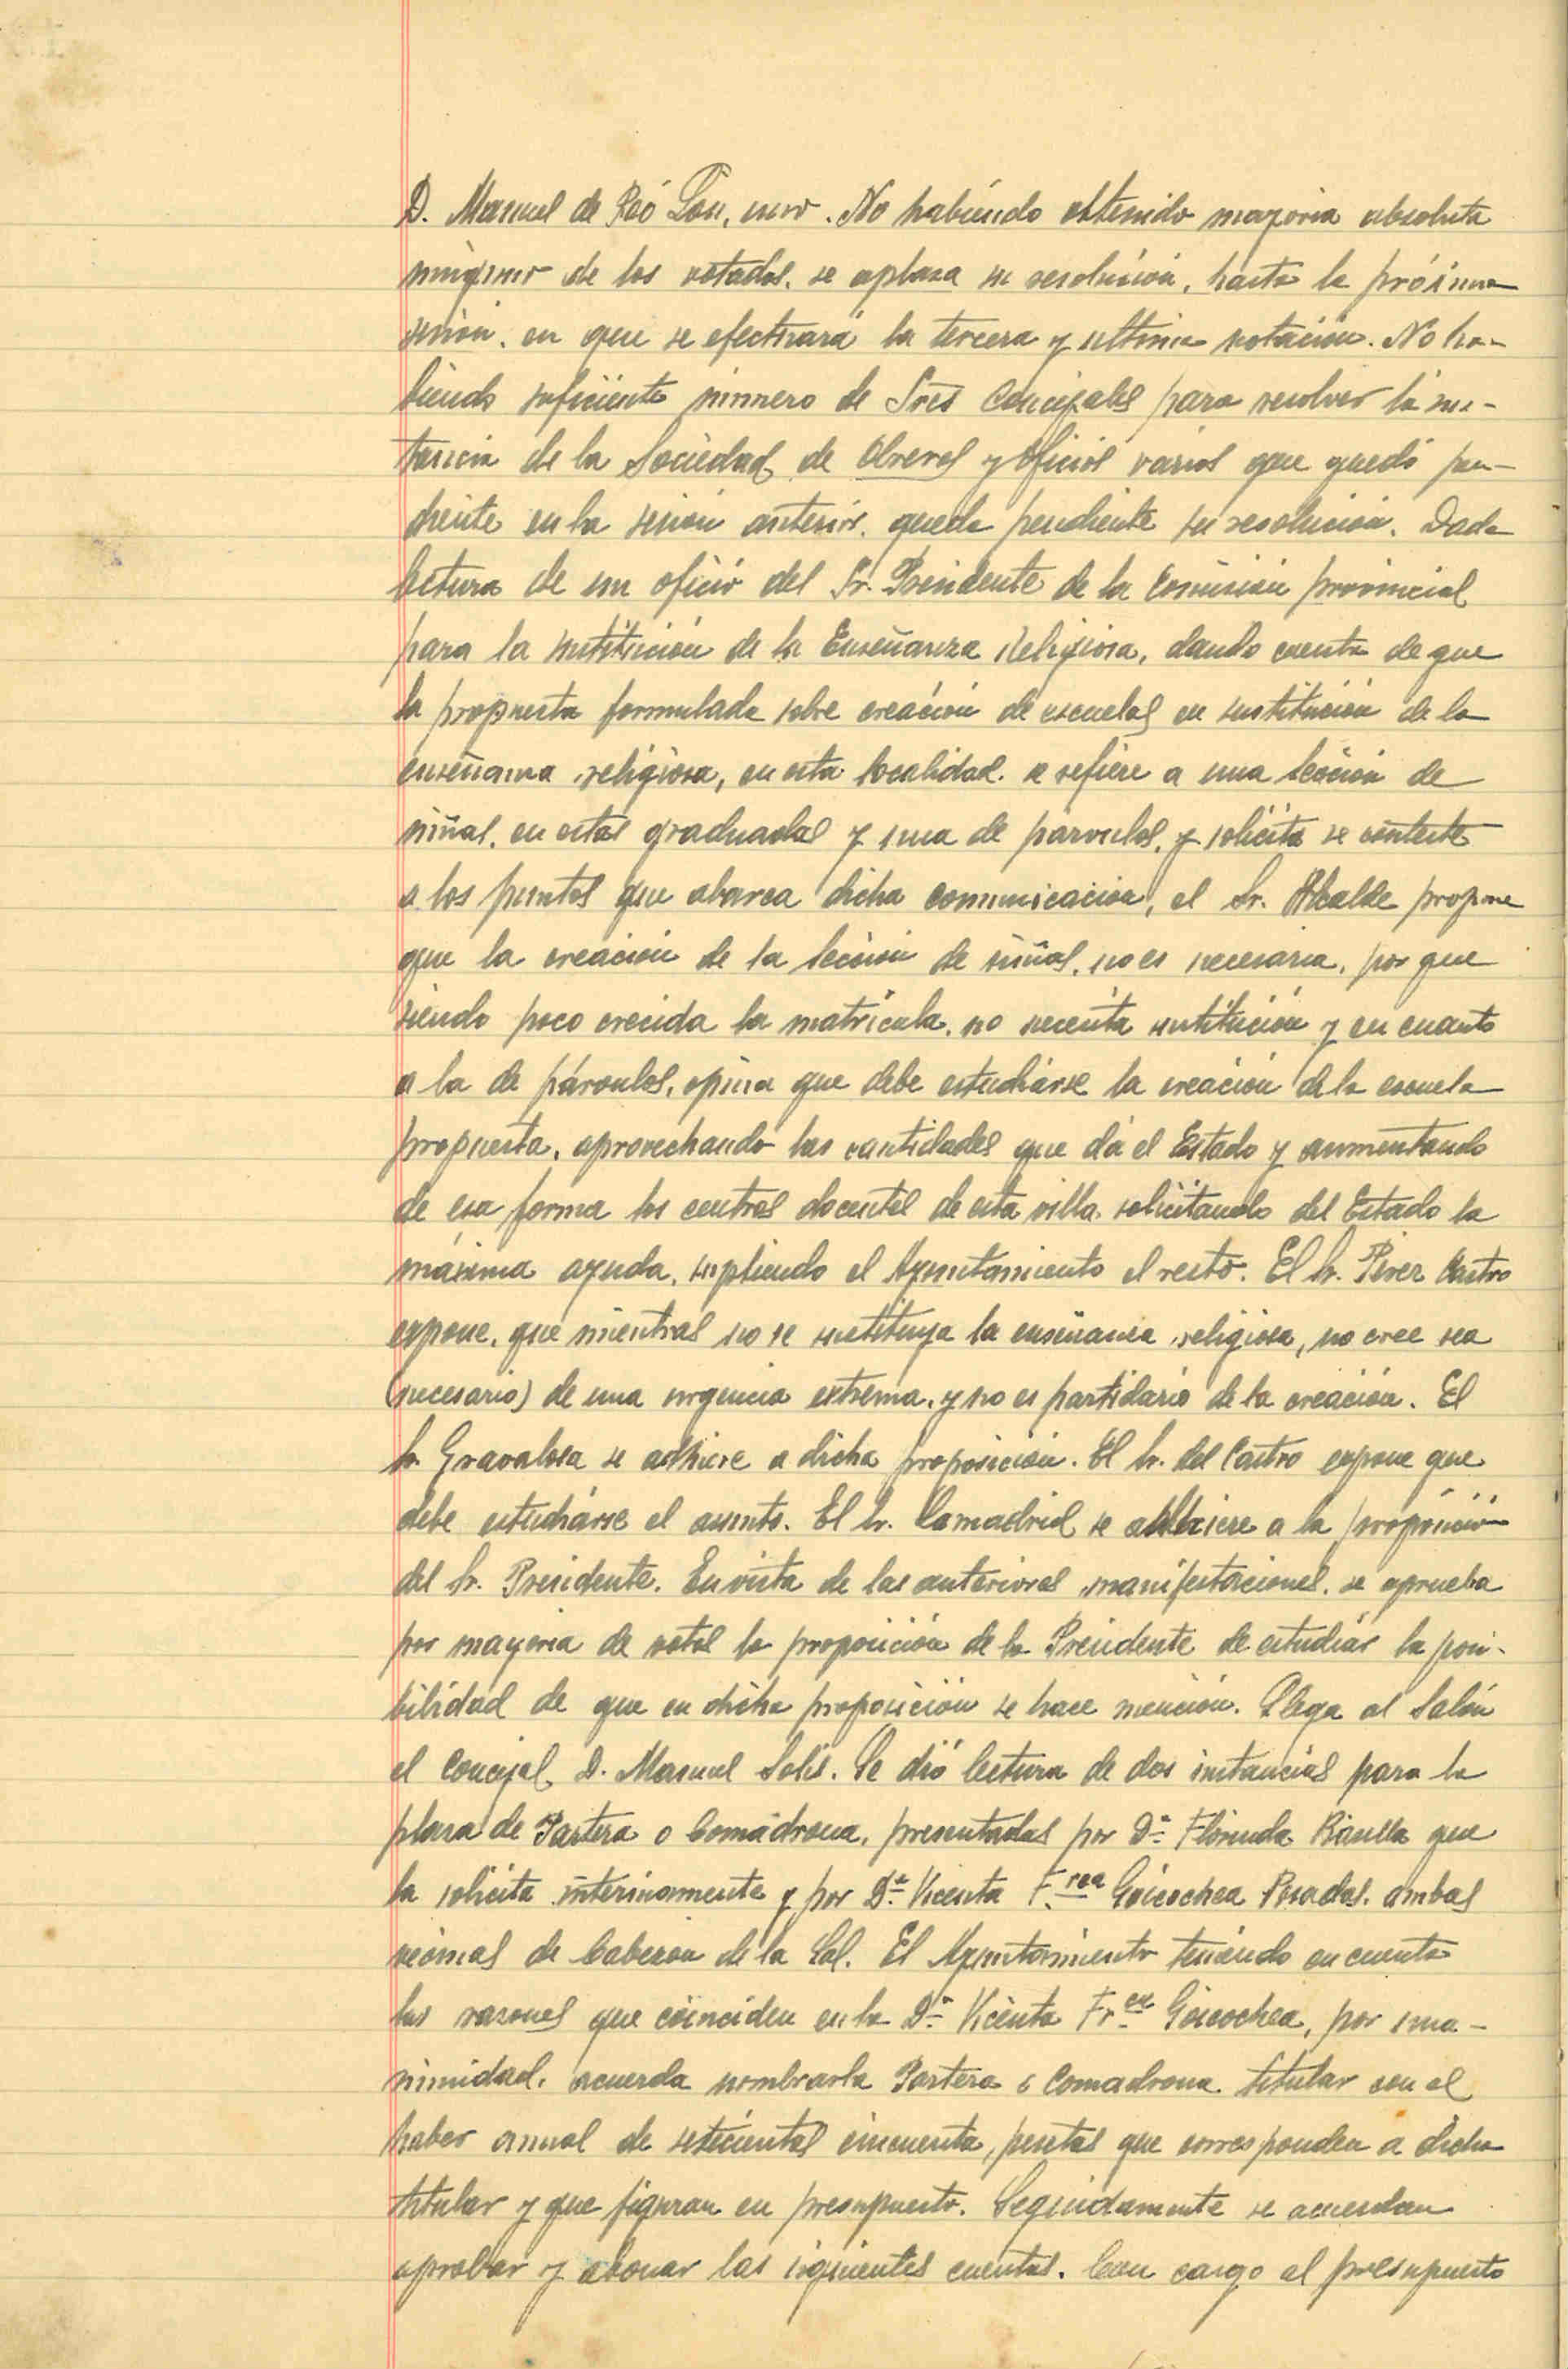 D. Manuel de Reó Lou, uno. No habiendo obtenido mayoria absoluta
ninguno de los votados, se aplaza su resolución, hasta la próxima
sesión, en que se efectuará la tercera y ultima votación. No ha-
biendo suficiente número de Sres Concejales para resolver la ins-
tancia de la Sociedad de Obreros y Oficios varios que quedó pen-
diente en la sesión anterior, queda pendiente su resolución. Dada
lectura de un oficio del Sr. Presidente de la Comisión provincial
para la sustitución de la Enseñanza Religiosa, dando cuenta de que
la propuesta formulada sobre creación de escuelas en sustitución de la
enseñanza religiosa, en esta localidad, se refiere a una sección de
niñas, en estas graduadas y una de párvulos, y solicita se conteste
a los puntos que abarca dicha comunicación, el Sr. Alcalde propone
que la creación de la sección de niñas, no es necesaria, por que
siendo poco crecida la matrícula, no necesita sustitución y en cuanto
a la de párvulos, opina que debe estudiarse la creación de la escuela
propuesta, aprovechando las cantidades que dá el Estado y aumentando
de esa forma los centros docentes de esta villa, solicitando del Estado la
máxima ayuda, supliendo el Ayuntamiento el resto. El Sr. Pérez Castro
expone, que mientras no se sustituya la enseñanza religiosa, no cree sea
(necesario) de una urgencia extrema, y no es partidario de la creación. El
Sr. Gravalosa se adhiere a dicha proposición. El Sr. del Castro expone que
debe estudiarse el asunto. El Sr. Camadrid se adhiere a la proposición
del Sr. Presidente. En vista de las anteriores manifestaciones, se aprueba
por mayoria de votos la proposición de la Presidente de estudiar la posi-
bilidad de que en dicha proposición se hace mención. Llega al Salón
el Concejal D. Manuel Solís. Se dió lectura de dos instancias para la
plaza de Partera o Comadrona, presentadas por Dª Florinda que
la solicita interinamente y por Dª Vicenta F.rea Goicochea Posadas, ambas
vecinas de Cabezón de la Sal. El Ayuntamiento teniendo en cuenta
las razones que coinciden en la Dª Vicenta Fr.ca Goicochea, por una-
nimidad, acuerda nombrarla Partera o Comadrona titular con el
haber anual de setecientas cincuenta pesetas que corresponden a dicha
titular y que figuran en presupuesto. Seguidamente se acuerdan
aprobar y abonar las siguientes cuentas. Con cargo al presupuesto